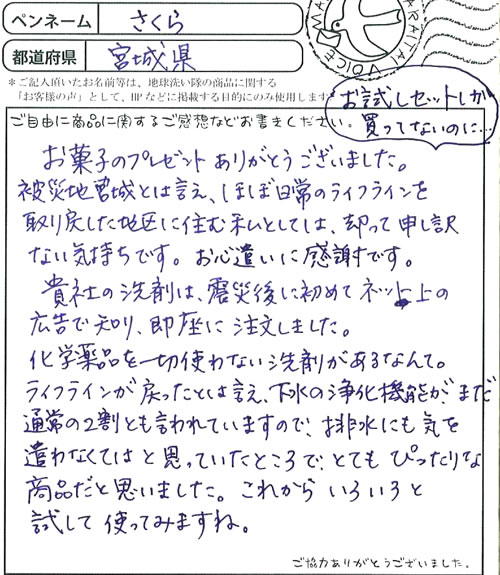 ペンネーム さくら
都道府県 宮城県
＊ご記入頂いたお名前等は、地球洗い隊の商品に関する
「お客様の声」として、HPなどに掲載する目的にのみ使用します
お試しセットしか
買ってないのに…
ご自由に商品に関するご感想などお書きください。
お菓子のプレゼントありがとうございました。
被災地宮城とは言え、ほぼ日常のライフラインを
取り戻した地区に住む私としては、却って申し訳
ない気持ちです。お心遣いに感謝です。
貴社の洗剤は、震災後に初めてネット上の
広告で知り、即座に注文しました。
化学薬品を一切使わない洗剤があるなんて。
ライフラインが戻ったとは言え、下水の浄化機能が、まだ
通常の2割とも言われていますので、排水にも気を
遣わなくてはと思っていたところで、とてもぴったりな
商品だと思いました。これからいろいろと
試して使ってみますね。
ご協力ありがとうございました。